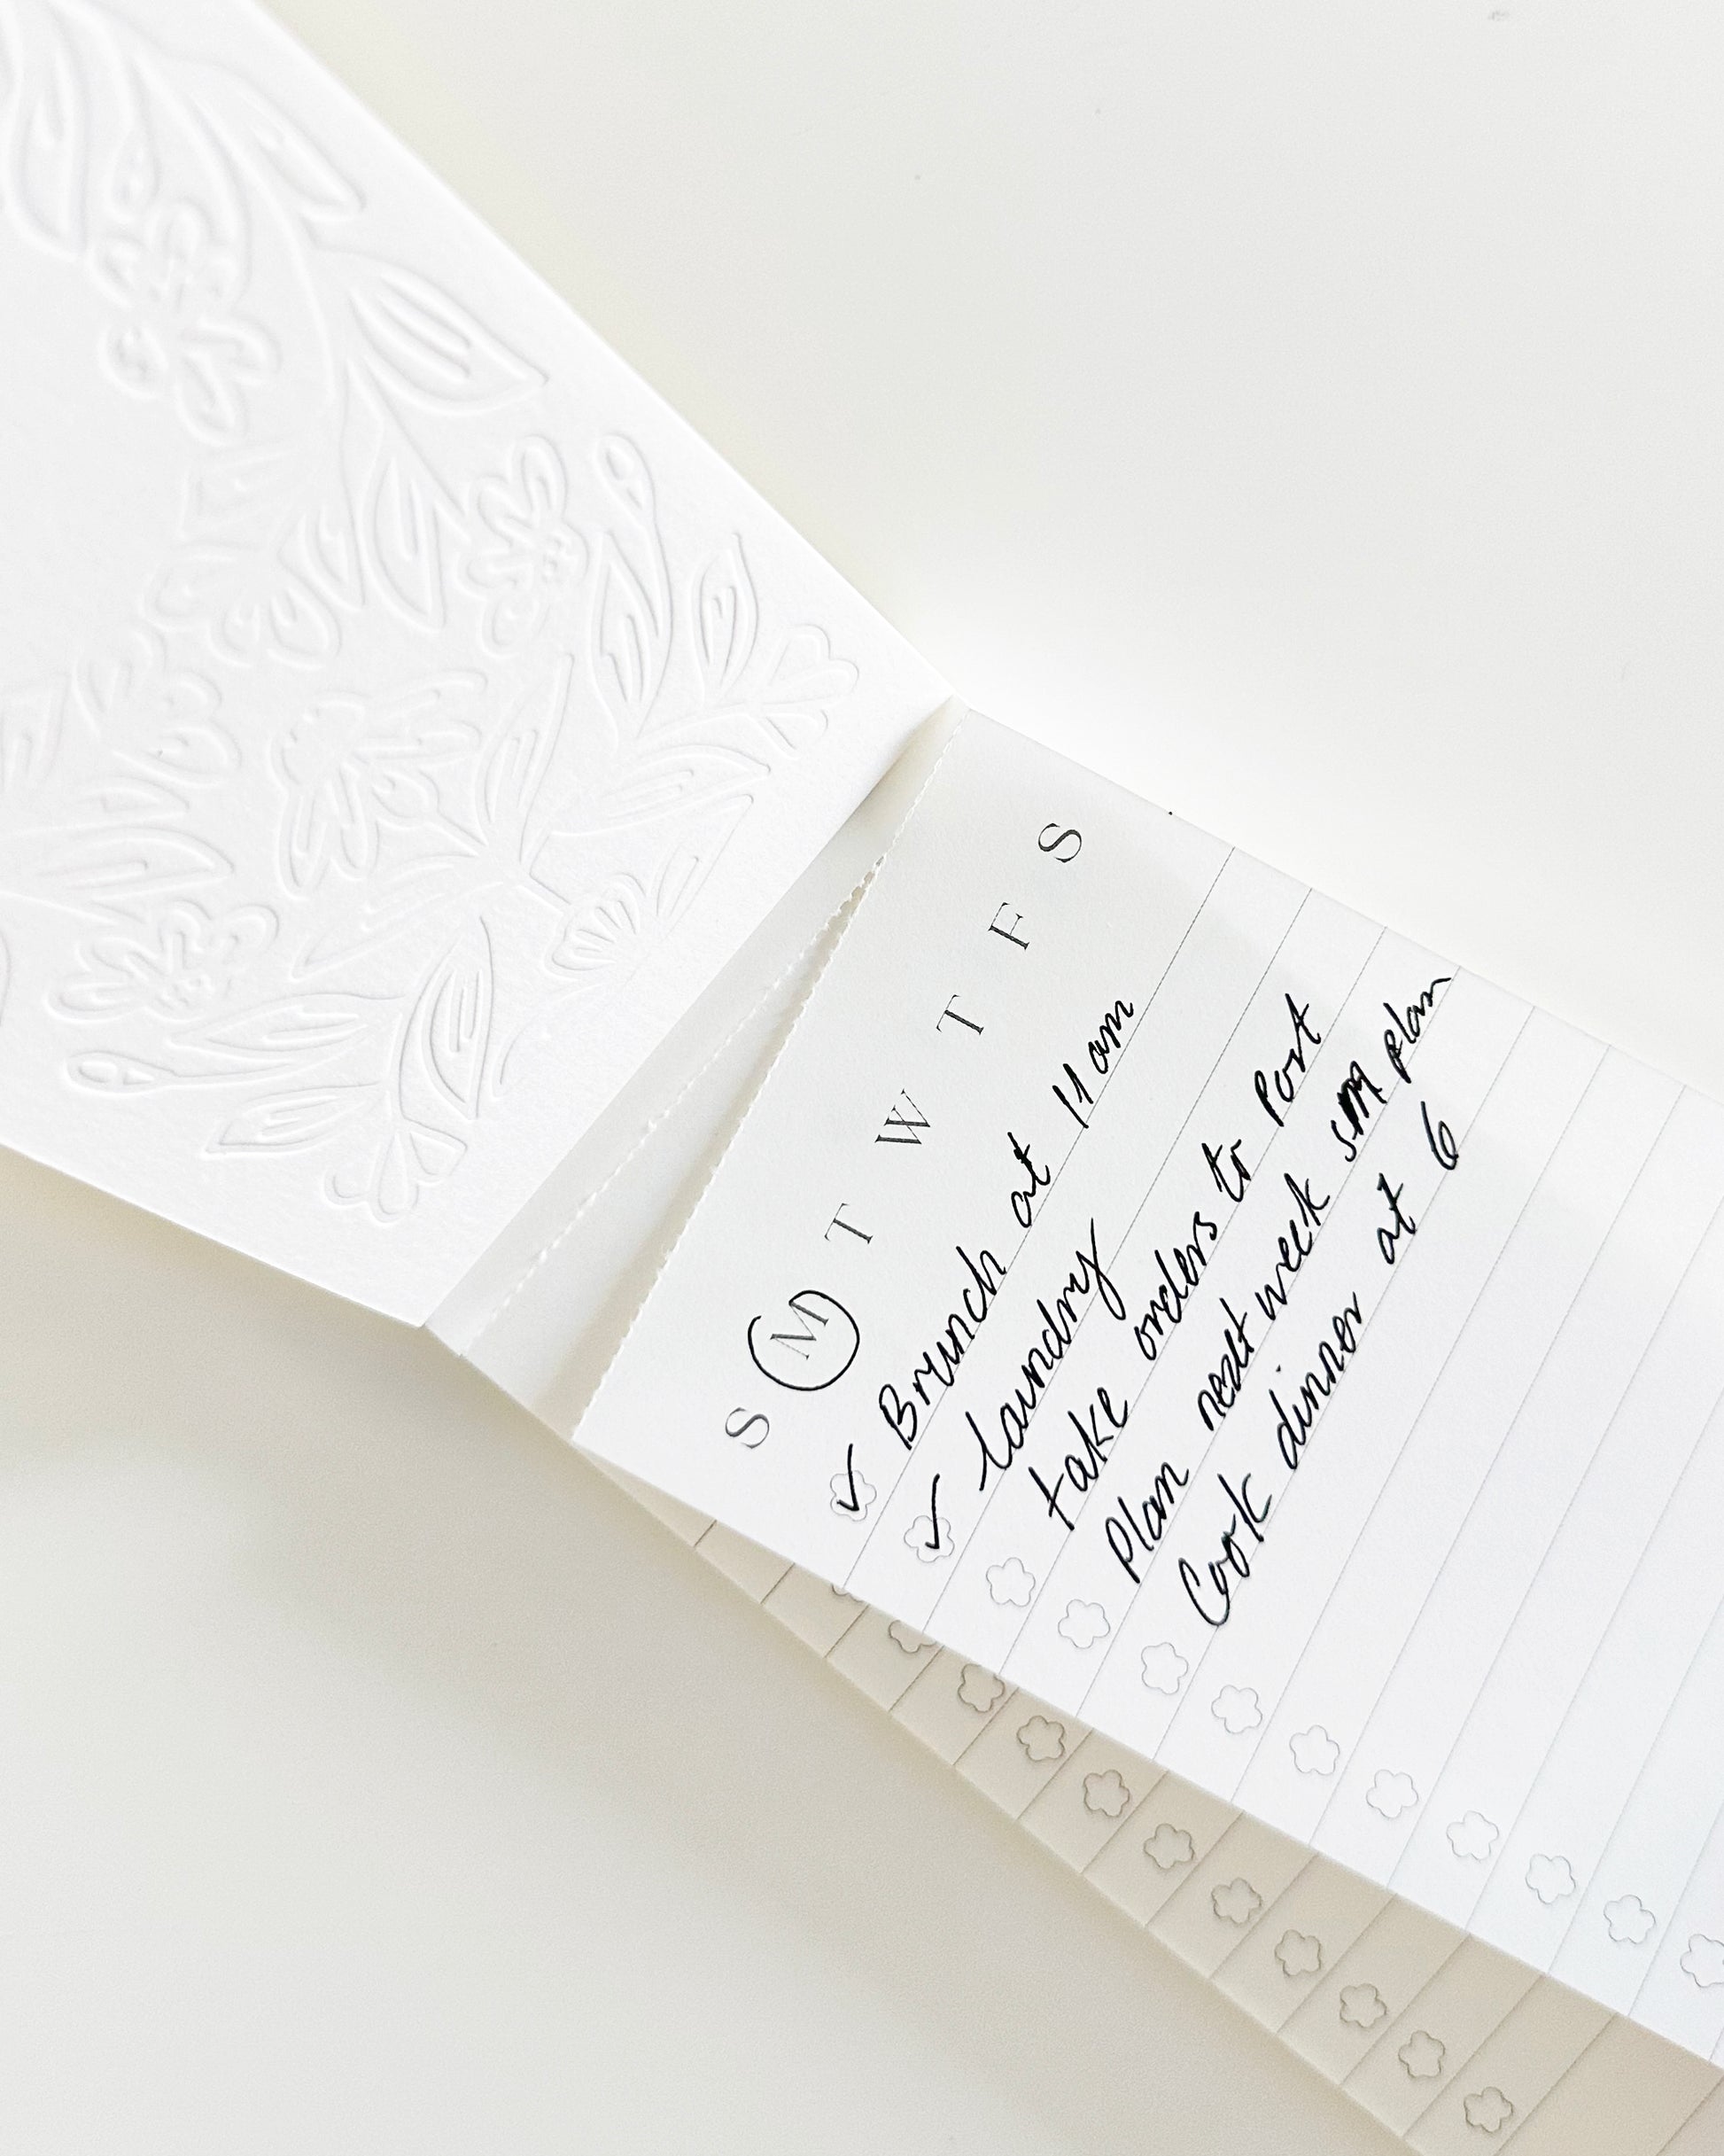 S M T W T F S
✓ Brunch at 11am
✓ laundry
take orders to Post
Plan next week sm plan
Cook dinner at 6